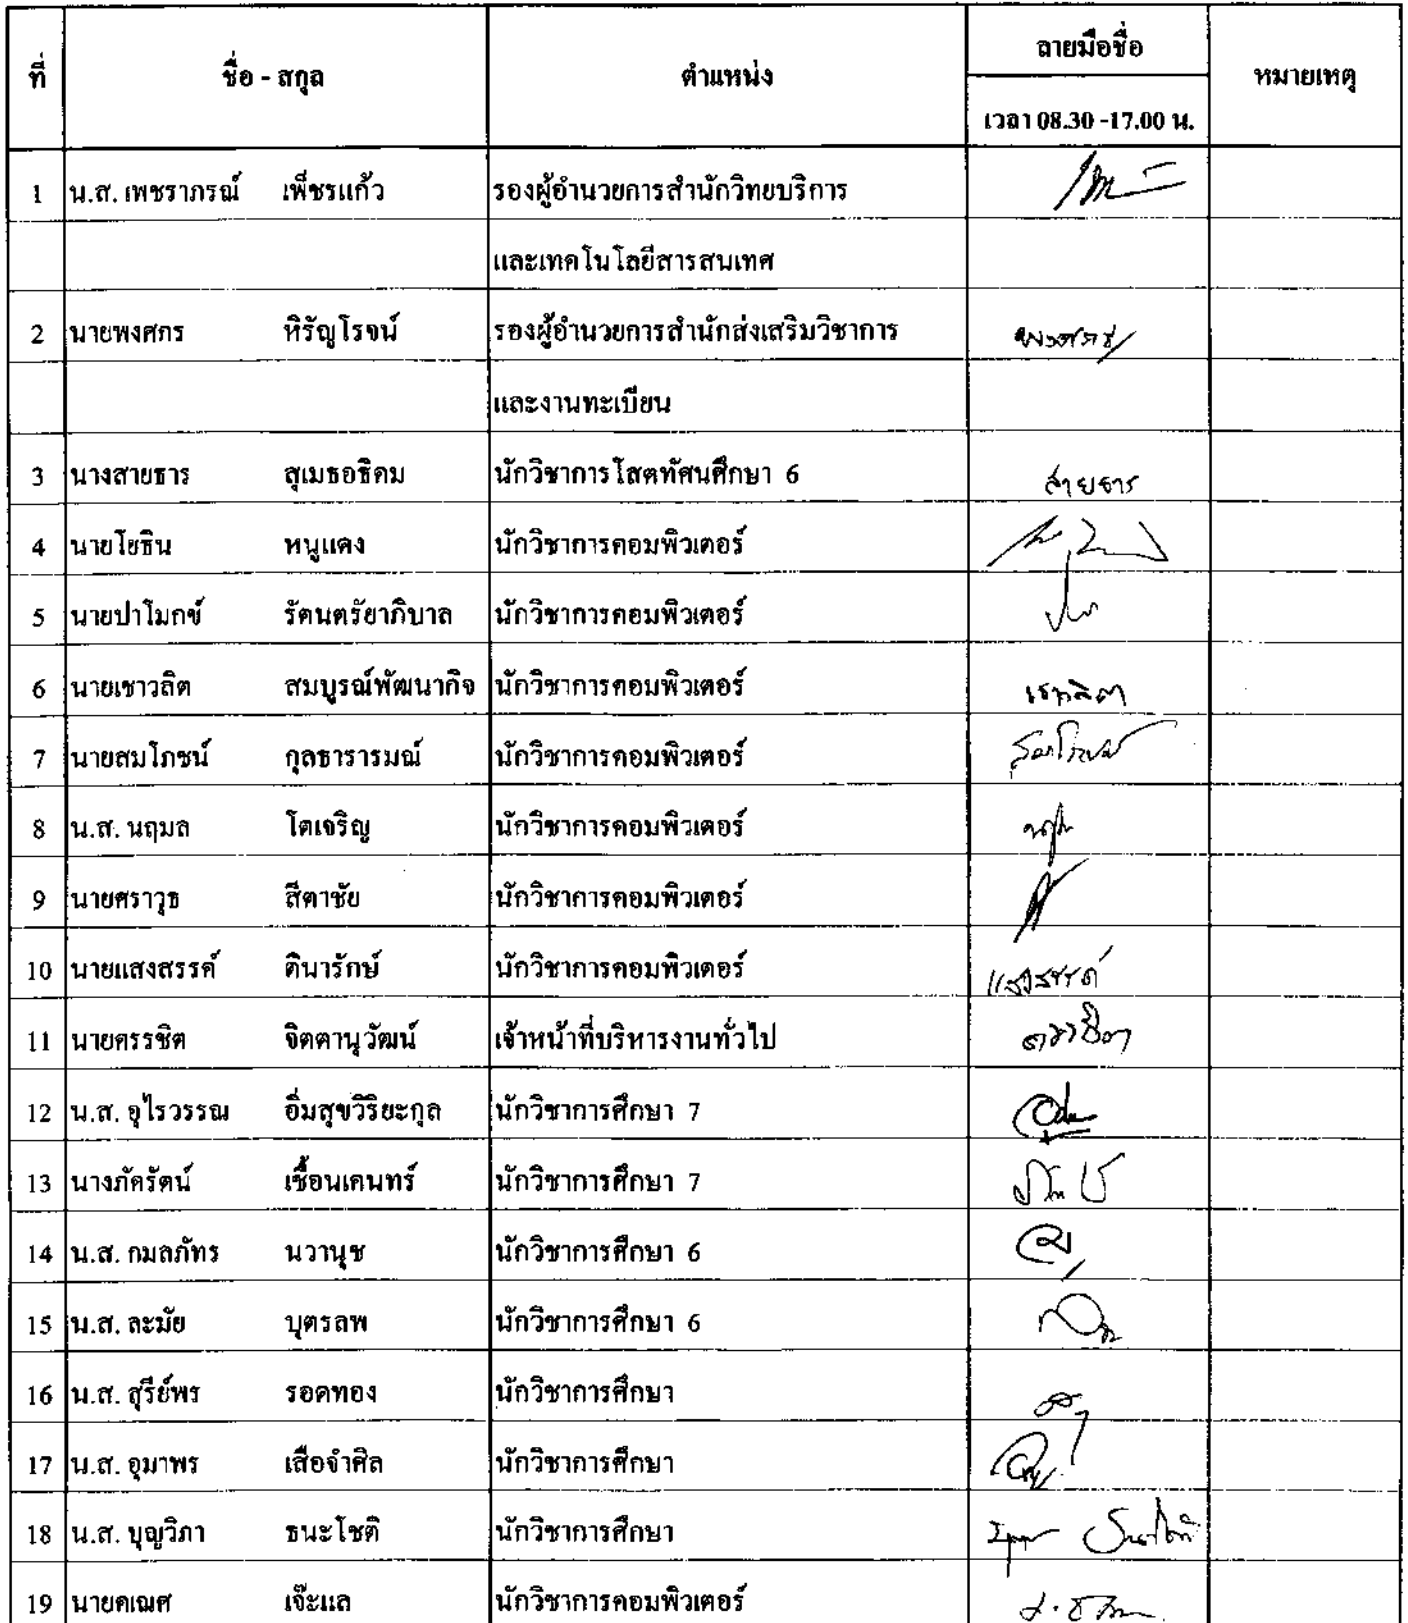 ที่ ชื่อ - สกุล ตำแหน่ง ลายมือชื่อ หมายเหตุ
เวลา 08.30 -17.00 น.
1 น.ส. เพชราภรณ์ เพ็ชรแก้ว รองผู้อำนวยการสำนักวิทยบริการ
และเทคโนโลยีสารสนเทศ
2 นายพงศกร หิรัญโรจน์ รองผู้อำนวยการสำนักส่งเสริมวิชาการ
และงานทะเบียน
3 นางสายธาร สุเมธอธิคม นักวิชาการโสตทัศนศึกษา 6 สายธาร
4 นายโยธิน หนูแดง นักวิชาการคอมพิวเตอร์
5 นายปาโมกข์ รัตนตรัยาภิบาล นักวิชาการคอมพิวเตอร์
6 นายเชาวลิต สมบูรณ์พัฒนากิจ นักวิชาการคอมพิวเตอร์ เชาวลิต
7 นายสมโภชน์ กุลธารารมณ์ นักวิชาการคอมพิวเตอร์
8 น.ส. นฤมล โตเจริญ นักวิชาการคอมพิวเตอร์
9 นายศราวุธ สีตาชัย นักวิชาการคอมพิวเตอร์
10 นายแสงสรรค์ ตินารักษ์ นักวิชาการคอมพิวเตอร์ แสงสรรค์
11 นายครรชิต จิตตานุวัฒน์ เจ้าหน้าที่บริหารงานทั่วไป ครรชิต
12 น.ส. อุไรวรรณ อิ่มสุขวิริยะกุล นักวิชาการศึกษา 7
13 นางภัครัตน์ เชื้อนเคนทร์ นักวิชาการศึกษา 7
14 น.ส. กมลภัทร นวานุช นักวิชาการศึกษา 6
15 น.ส. ละมัย บุตรลพ นักวิชาการศึกษา 6
16 น.ส. สุรีย์พร รอดทอง นักวิชาการศึกษา
17 น.ส. อุมาพร เสือจำศิล นักวิชาการศึกษา
18 น.ส. บุญวิภา ธนะโชติ นักวิชาการศึกษา
19 นายคเณศ เจ๊ะแล นักวิชาการคอมพิวเตอร์